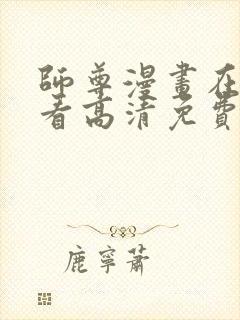 師尊漫畫在
看高清免費
鹿寧蕭